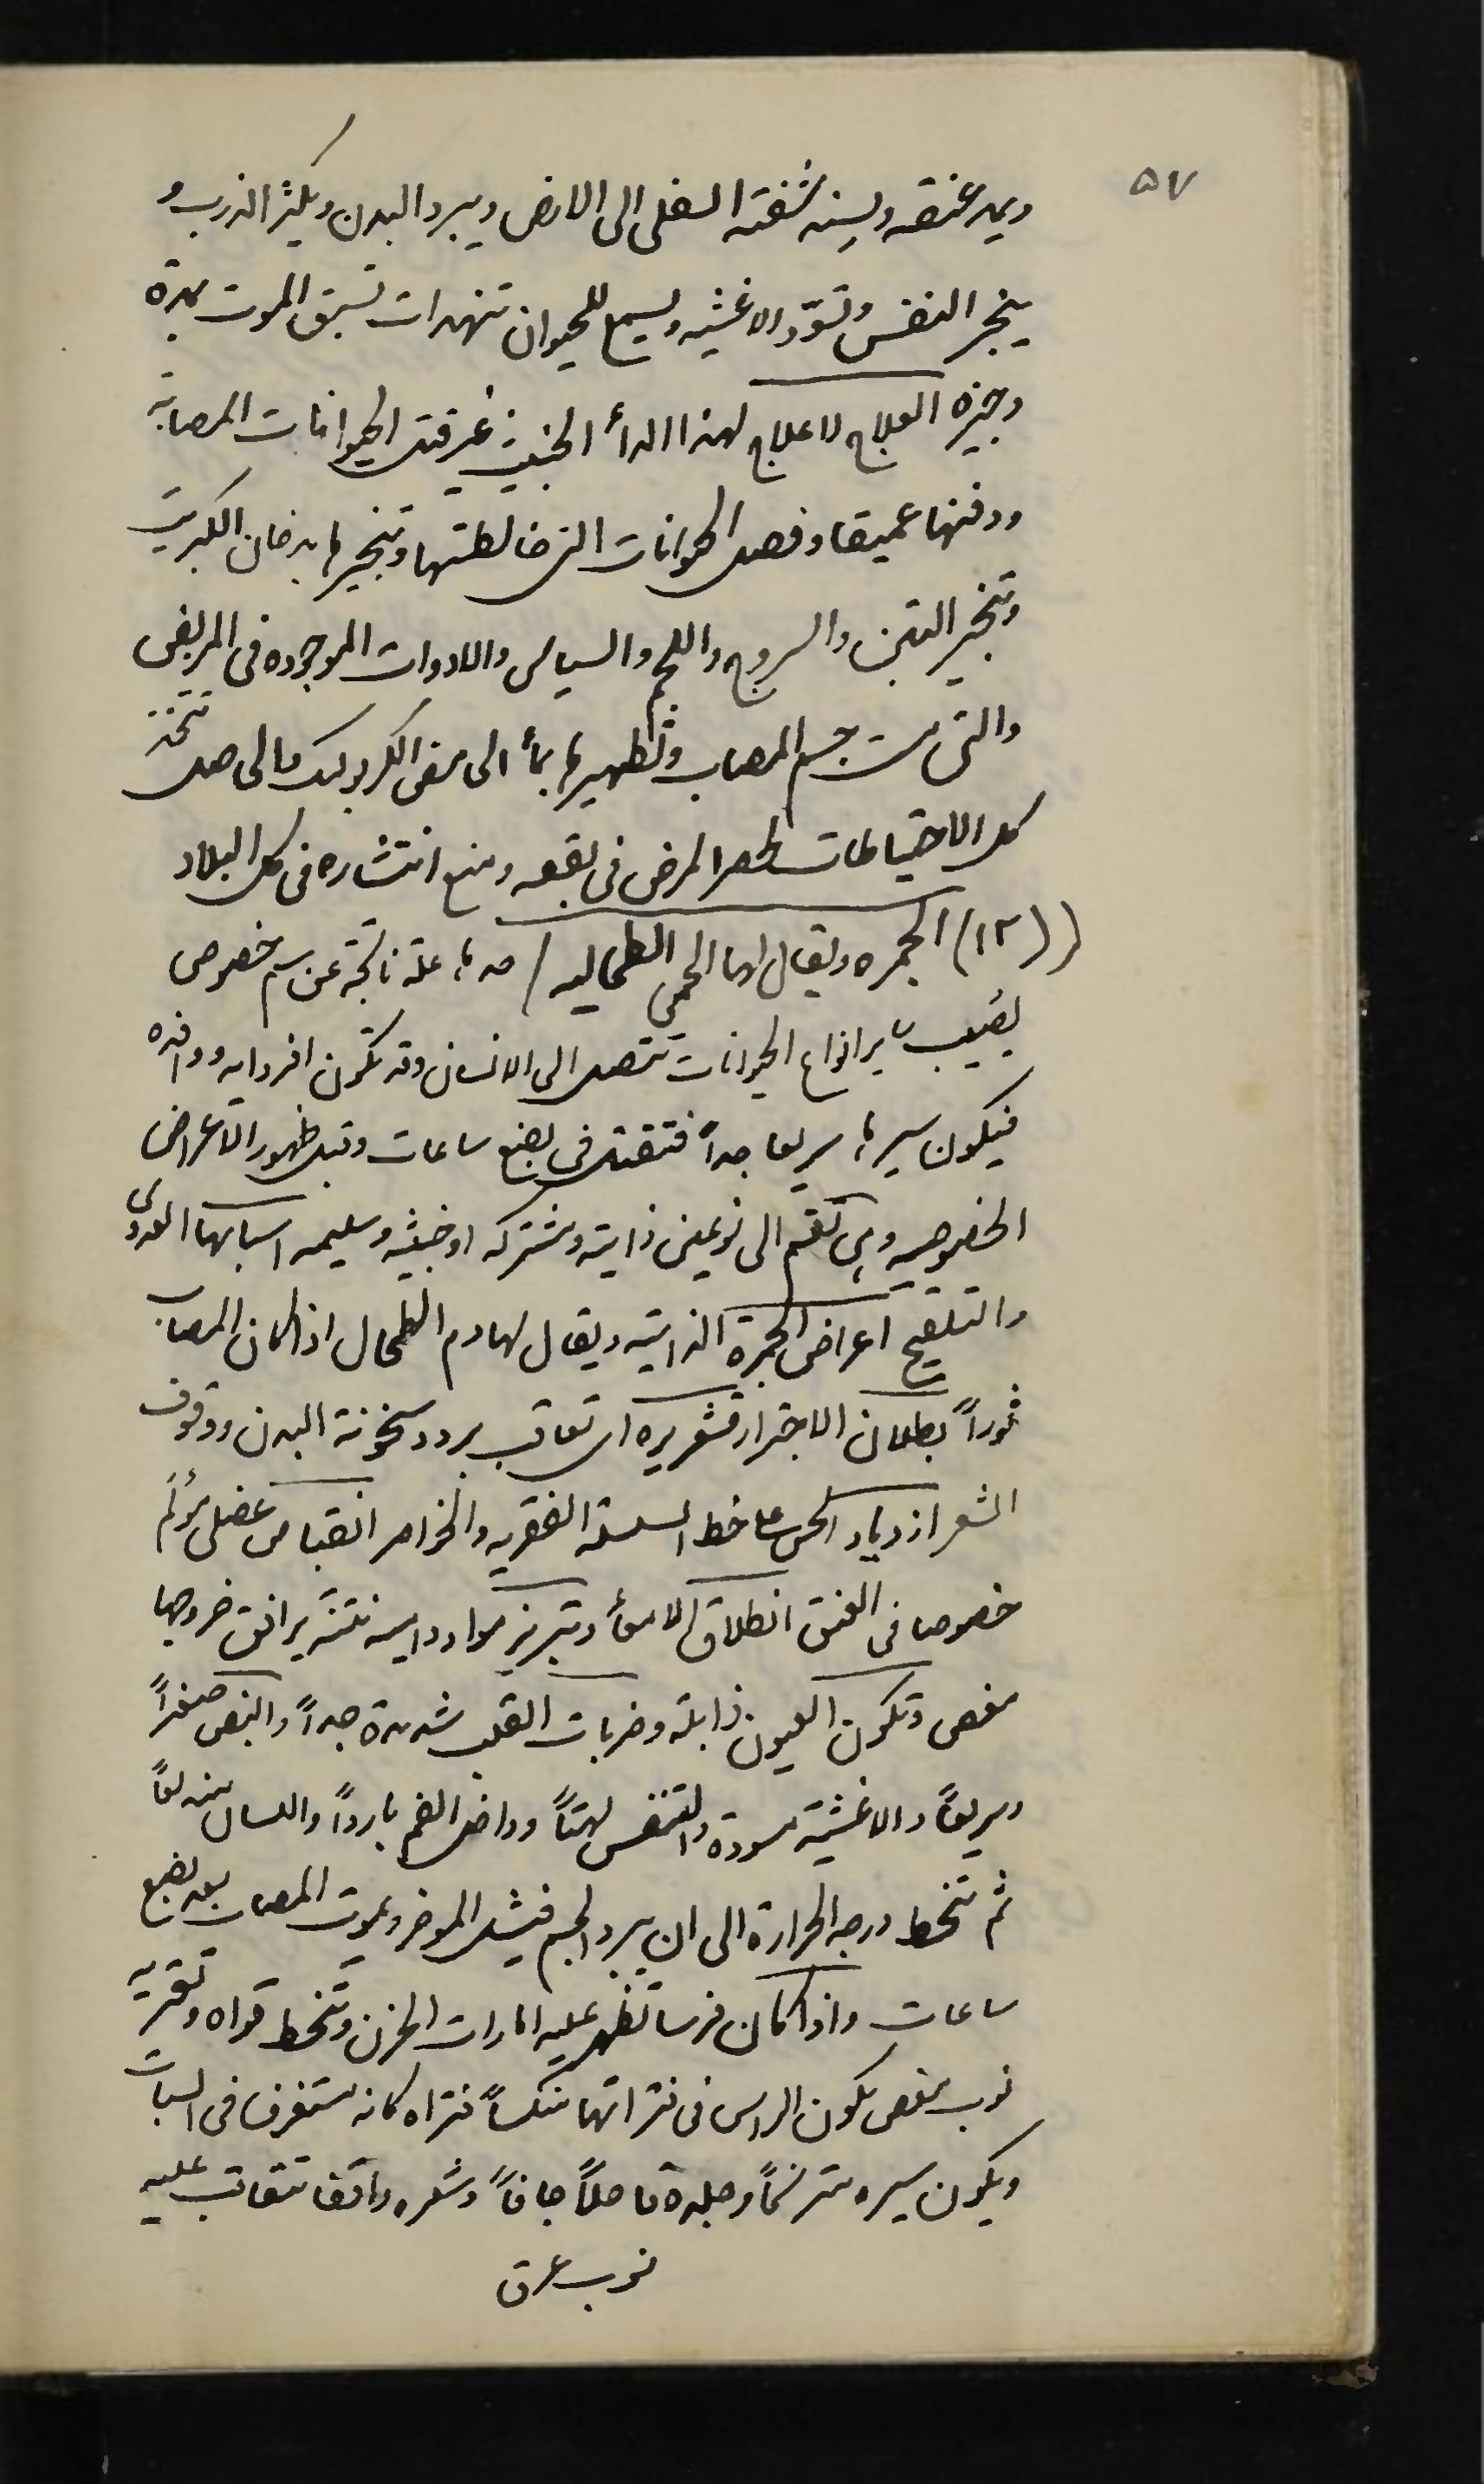 ٥٧
ويمد عنقه ويسند شفته السفلى الى الارض ويبرد البدن ويكثر الذرب و
ينجر النفس وتسوّد الاغشيه ويسمع للحيوان تنهدات تسبق الموت بمدة
وجيزه العلاج لا علاج لهذا الدأ الخبيث غير قتل الحيوانات المصابة
ودفنها عميقا وفصل الحيوانات التى خالطتها وتبخيرها بدخان الكبريت
وتبخير التبن والسروج واللجم والسياس والادوات الموجوده فى المريض
والتى مست جسم المصاب وتطهيرها بمأ الحامض الكربوليك والحاصل تتخذ
كل الاحتياطات لحصر المرض فى بقعه ومنع انتشاره فى كل البلاد
((١٢) الجمره ويقال لها الحمى الطحاليه / حدها علة ناتجة عن سم خصوصى
يصيب ساير انواع الحيوانات تتصل الى الانسان وقد تكون افراديه ووافده
فيكون سيرها سريعا جداً فتقتل فى بضع ساعات وقبل ظهور الاعراض
الخصوصيه وهى تقسم الى نوعين ذاتية ومشتركه او خبيثه وسليمه اسبابها العدوى
والتلقيح اعراض الجمرة الذاتية ويقال لها دم الطحال اذا كان المصاب
ثوراً بطلان الاجترار قشعريره اى تعاقب برد وسخونة البدن ووقوف
الشعر ازدياد الحس على خط السلسلة الفقريه والخواصر انقباض عضلى مؤلم
خصوصا فى العنق انطلاق الامعأ وتبريز مواد داميه نتنه يرافق خروجها
مغص وتكون العيون ذابلة وضربات القلب شديدة جداً والنبض صغيراً
وسريعاً والاغشية مسودة والتنفس لهثاً وداخل الفم بارداً واللسان مندلعاً
ثم تنحط درجه الحرارة الى ان يبرد الجسم فيشل المؤخر ويموت المصاب بعد بضع
ساعات واذا كان فرسا تظهر عليه امارات الحزن وتنحط قواه وتعتريه
نوب مغص يكون الراس فى فتراتها منكساً فتراه كانه مستغرق فى السبات
ويكون سيره مترنحاً وجلده قاحلاً جافاً وشعره واقفا تتعاقب عليه
نوب عرق